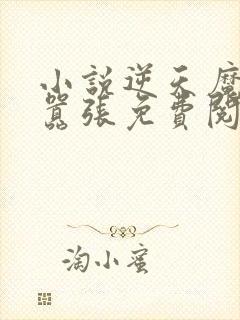 小說逆天魔
囂張免費閱
淘小蜜